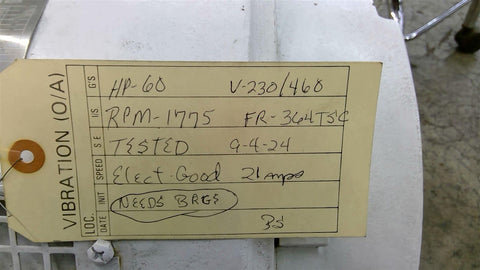 HP-60 V-230/460
RPM-1775 FR-364TSC
TESTED 9-4-24
Elect. Good 21 Amps
NEEDS BRGS
VIBRATION (O/A)
LOC.
DATE INIT SPEED G'S